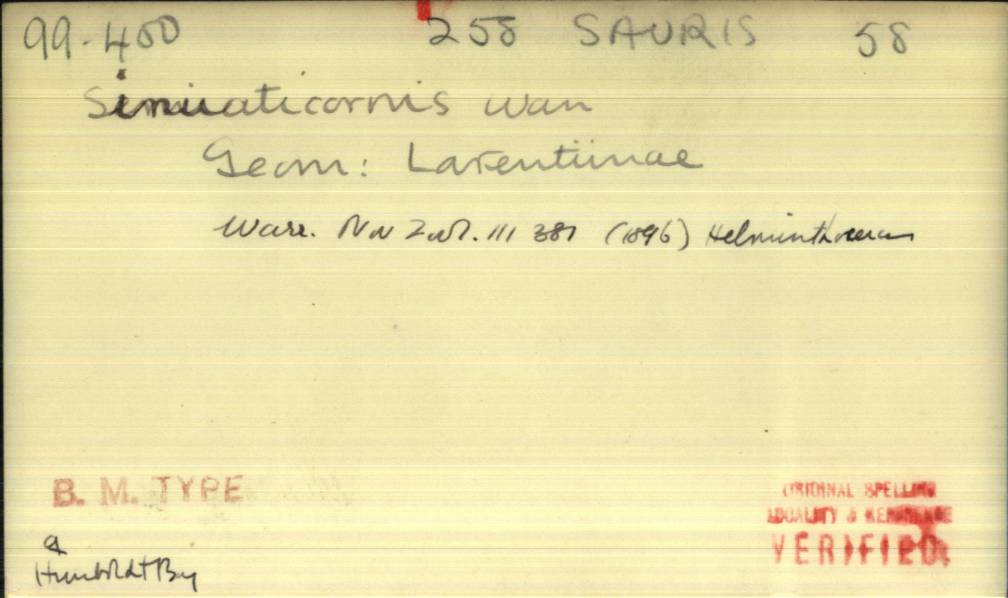 99.400 258 SAURIS 58
Sinuaticornis Warr
Geom: Larentiinae
Warr. Nov Zool. III 381 (1896) Helminthoceras
B. M. TYPE
ORIGINAL SPELLING
LOCALITY & REFERENCE
VERIFIED.
Humboldt Bay